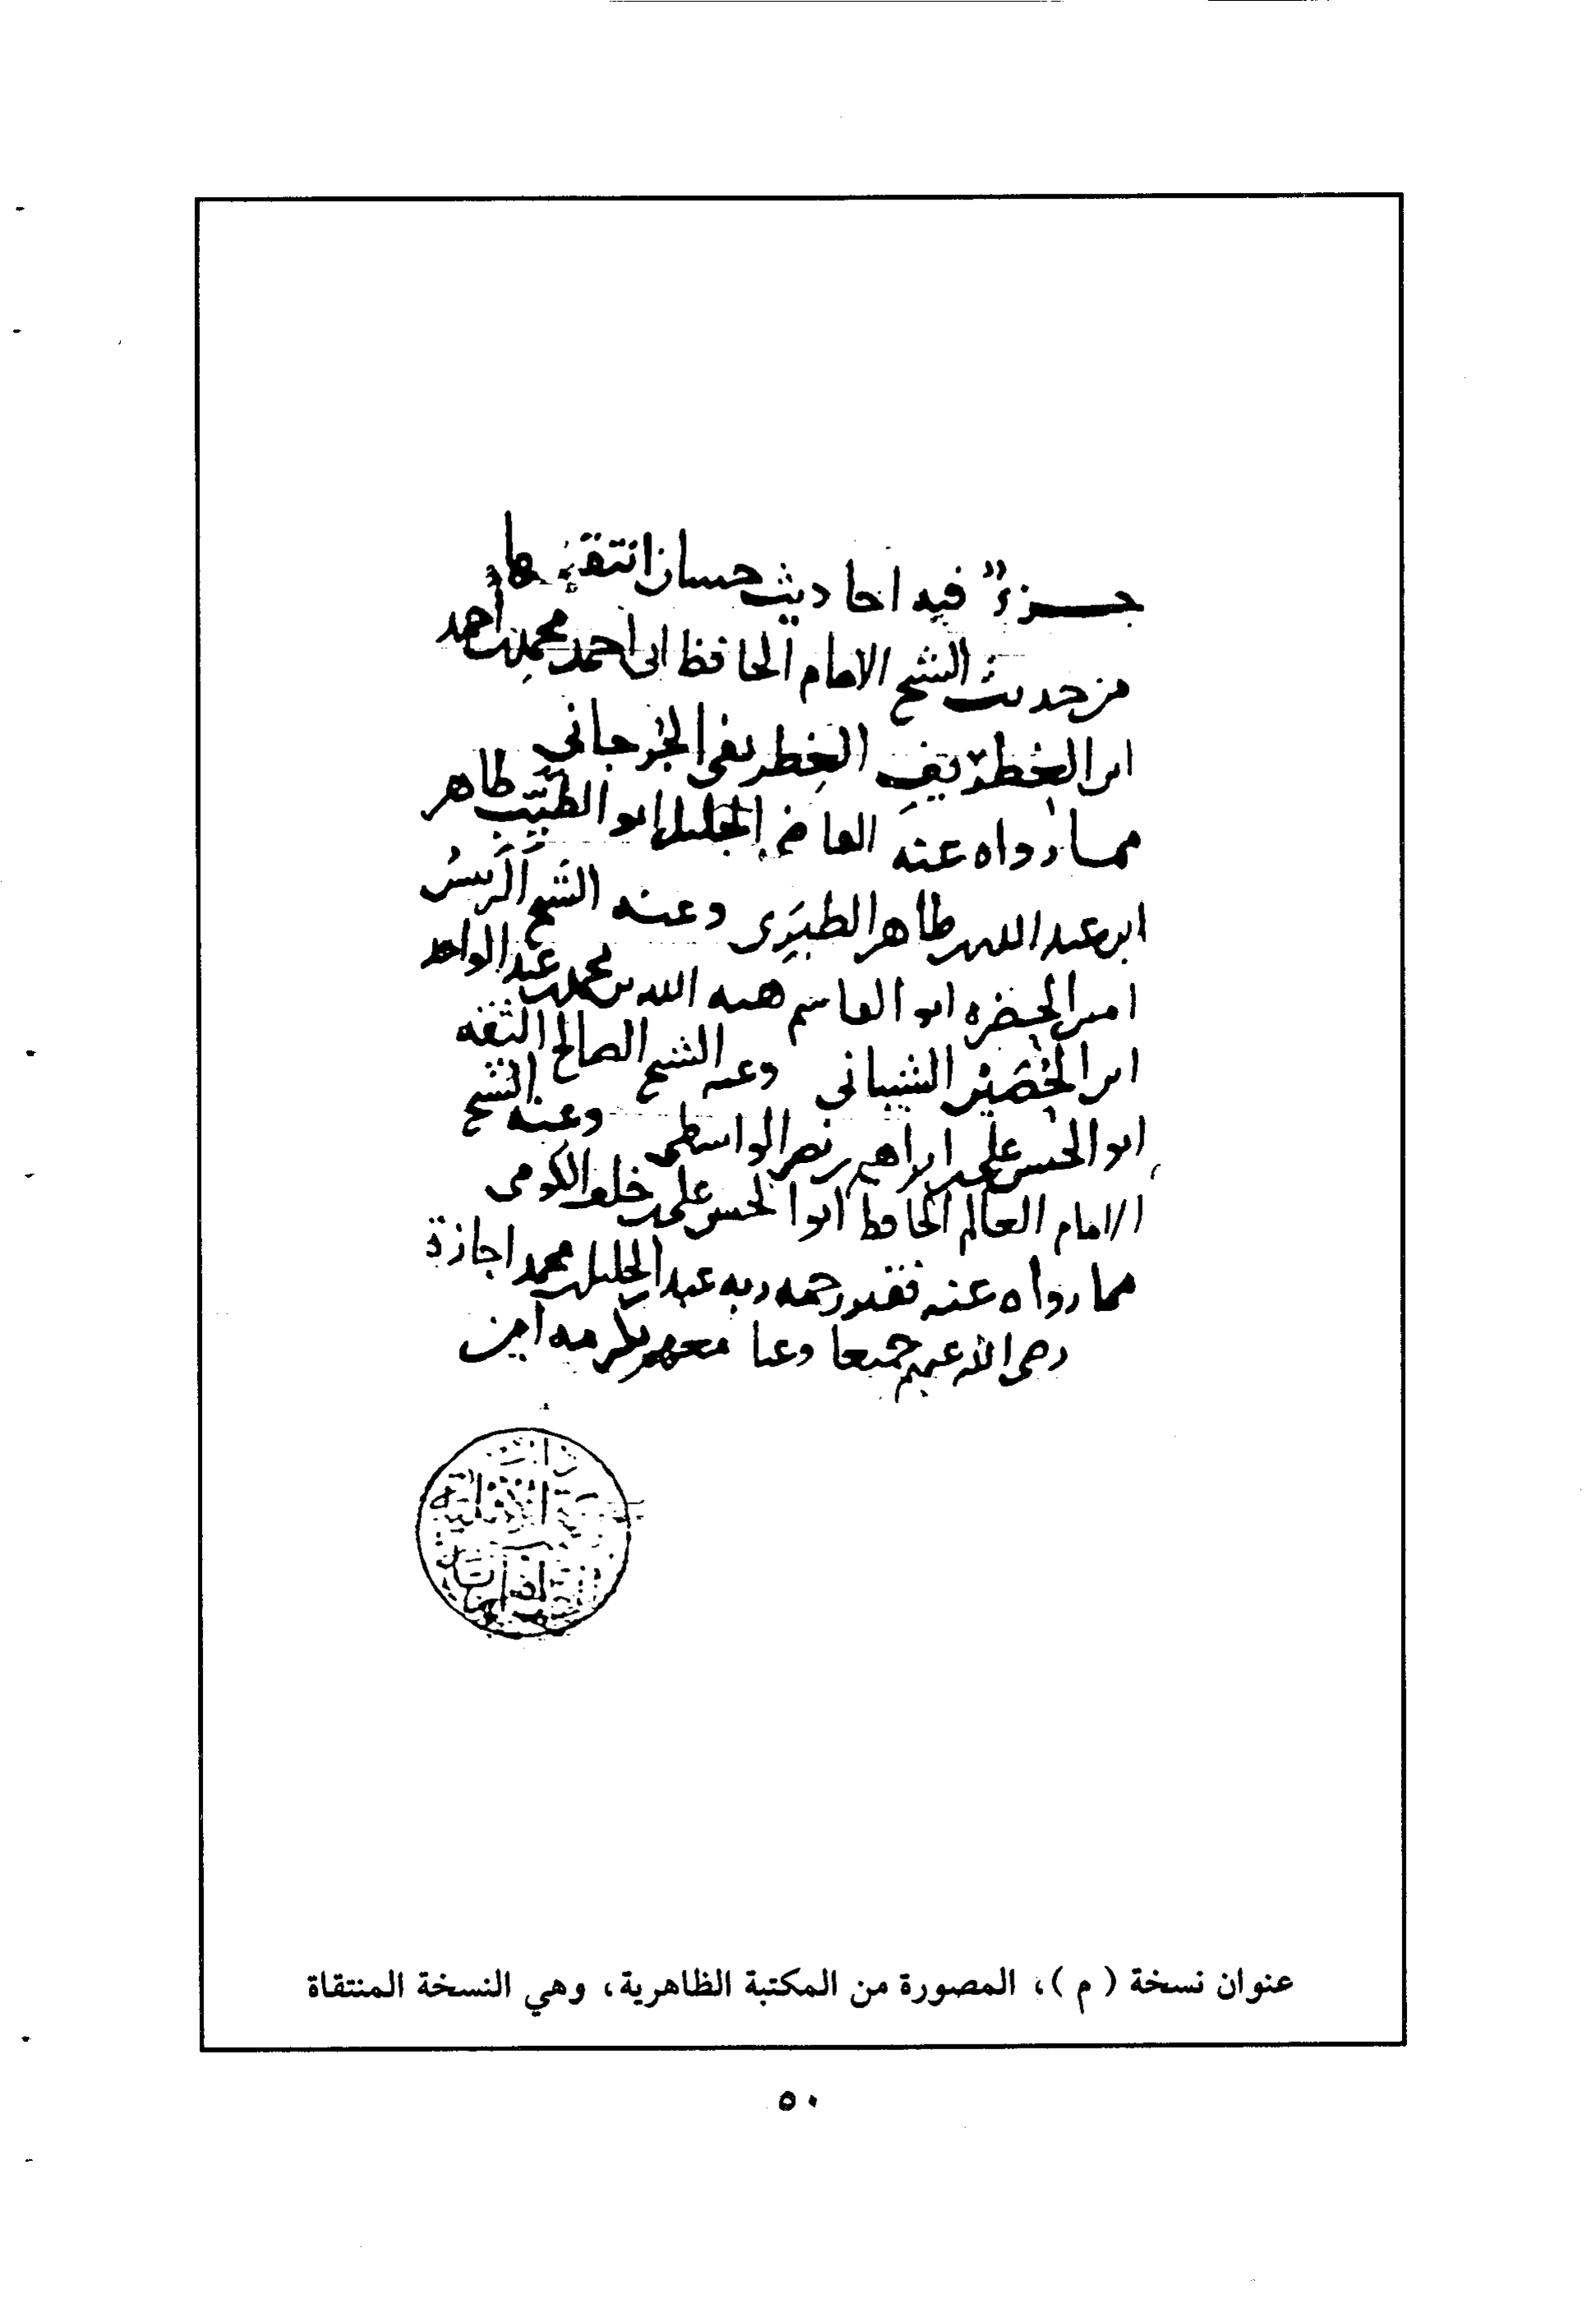 جزء فيه احاديث حسان انتقيتها
من حديث الشيخ الامام الحافظ ابى احمد محمد بن احمد
ابن الغطريف الغطريفى الجرجاني
مما رواه عنه القاضى الجليل ابو الطيب طاهر
ابن عبد الله بن طاهر الطبرى وعنه الشيخ الرئيس
امين الحضره ابو القاسم هبه الله بن محمد بن عبد الواحد
ابن الحصين الشيبانى وعنه الشيخ الصالح الثقه
ابو الحسن على بن ابراهيم بن نصر الواسطى وعنه الشيخ
الامام العالم الحافظ ابو الحسن على بن خلف الكومى
مما رواه عنه فقير رحمه ربه عبد الجليل بن محمد اجازة
رضى الله عنهم جميعا وعنا معهم بكرمه امين
عنوان نسخة ( م )، المصورة من المكتبة الظاهرية، وهي النسخة المنتقاة
٥٠